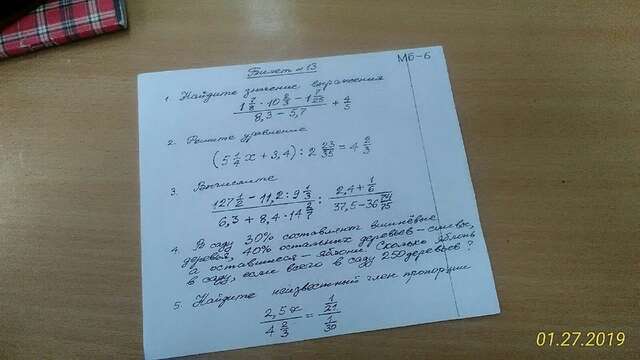 Билет №13
Мб-6
1. Найдите значение выражения
(1 7/8 · 10 2/3 − 1 7/25) / (8,3 − 5,7) + 4/5
2. Решите уравнение
(5 1/4 x + 3,4) : 2 23/35 = 4 2/3
3. Вычислите
(127 1/2 − 11,2 : 9 1/3) / (6,3 + 8,4 · 14 2/7) : (2,4 + 1/6) / (37,5 − 36 /75)
4. В саду 30% составляют вишнёвые
деревья, 40% остальных деревьев – сливовые,
а оставшиеся – яблони. Сколько яблонь
в саду, если всего в саду 250 деревьев?
5. Найдите неизвестный член пропорции
2,5x / 4 2/3 = 1/21 / 1/30
01.27.2019